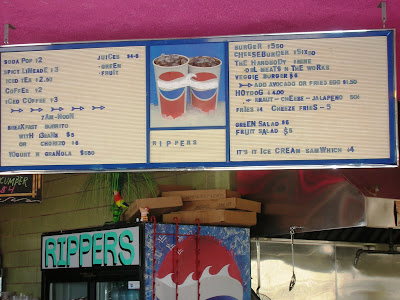 SODA POP $2
SPICY LIMEADE $3
ICED TEA $2.50
COFFEE $2
ICED COFFEE $3
7AM-NOON
BREAKFAST BURRITO
WITH BEANS $5
OR CHORIZO $6
YOGURT N GRANOLA
JUICES $4-6
-GREEN
-FRUIT
PEPSI
PEPSI
RIPPERS
BURGER $550
CHEESEBURGER
THE HANDBODY
MEATS N THE WORKS
VEGGIE BURGER $6
ADD AVOCADO OR FRIED EGG $1.50
HOTDOG $4.00
+ KRAUT - CHEESE - JALAPENO
FRIES $4 CHEEZE FRIES - 5
GREEN SALAD $6
FRUIT SALAD $5
IT'S IT ICE CREAM SAMWHICH $4
CUMBER
$4
RIPPERS